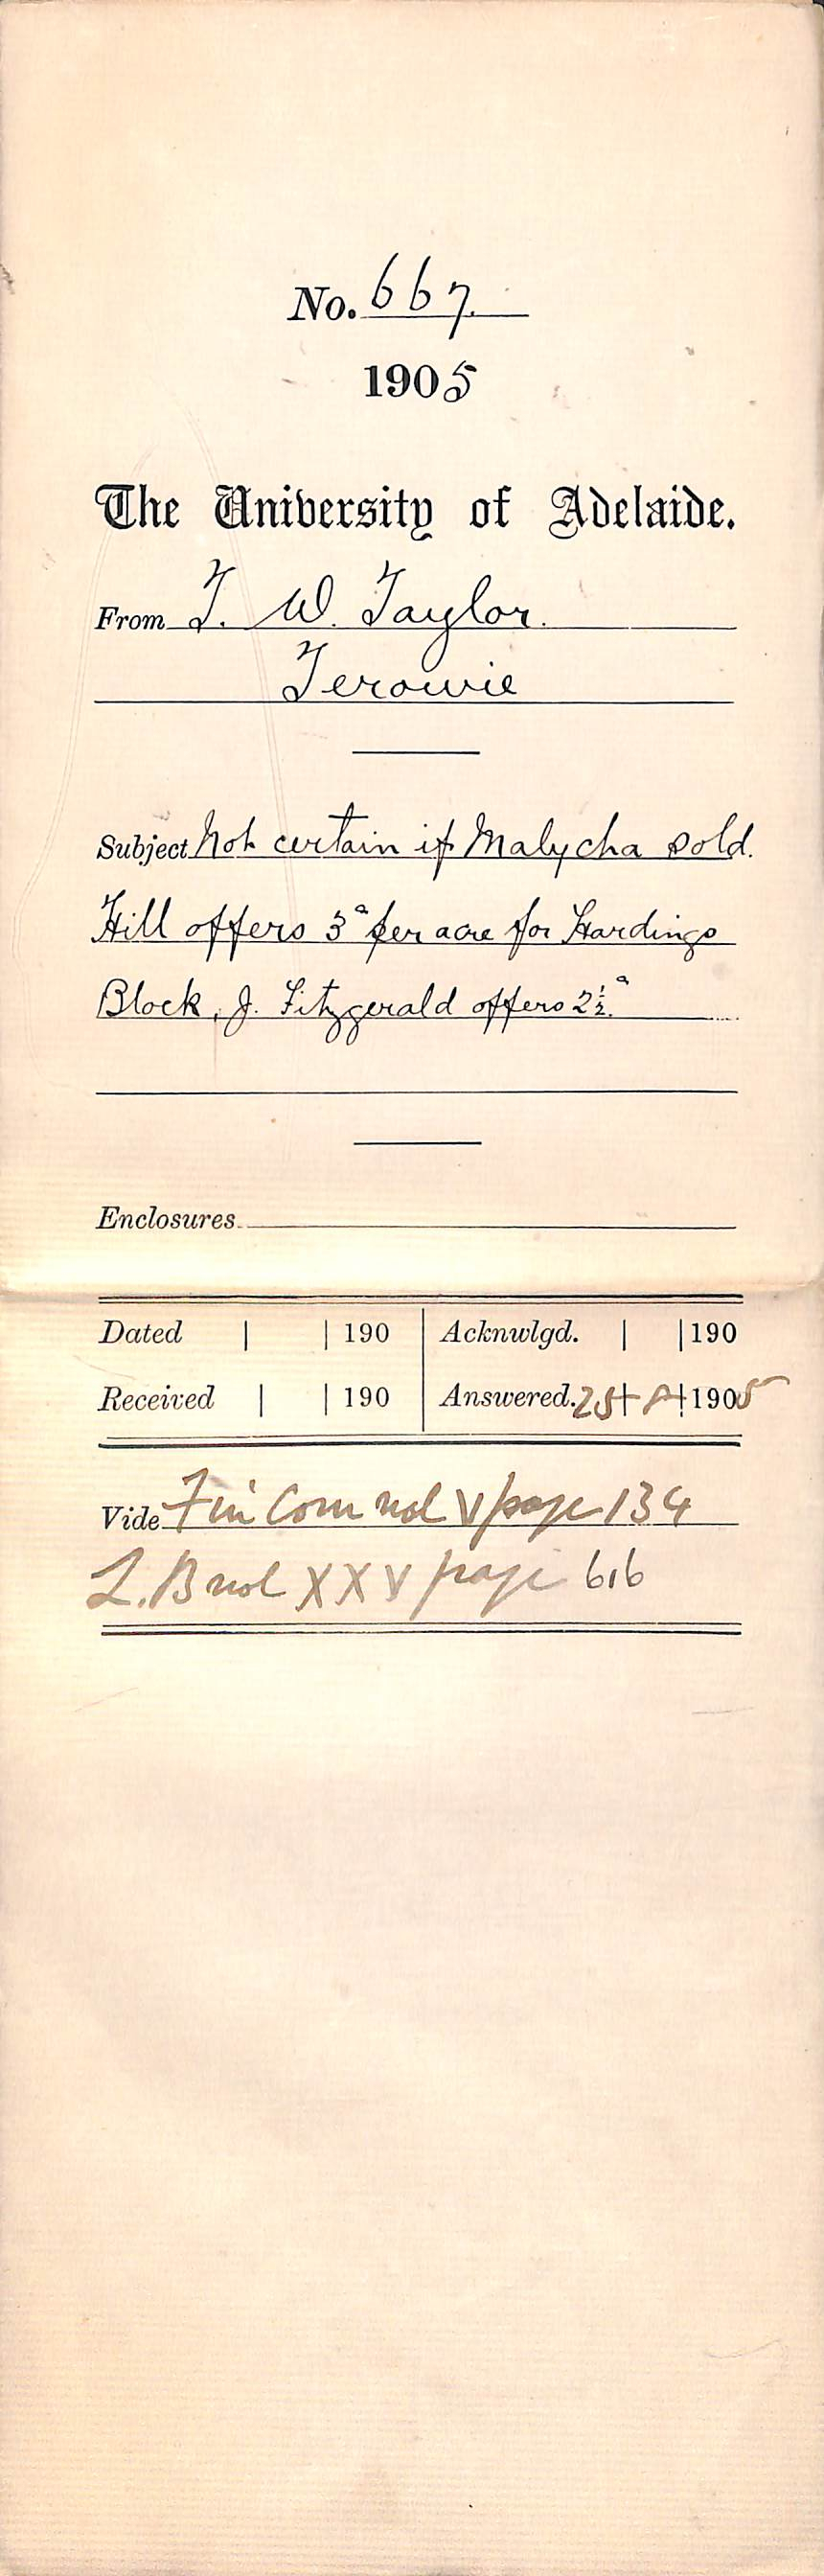 No. 667.
1905
The University of Adelaide.
From T. W. Taylor.
Terowie
Subject Not certain if Malycha sold.
Hill offers 3ᵈ per acre for Hardings
Block, J. Fitzgerald offers 2½ᵈ
Enclosures
Dated | | 190 | Acknwlgd. | | 190
Received | | 190 | Answered. 25 | 8 | 1905
Vide Fin Com vol V page 134
L.B vol XXV page 616